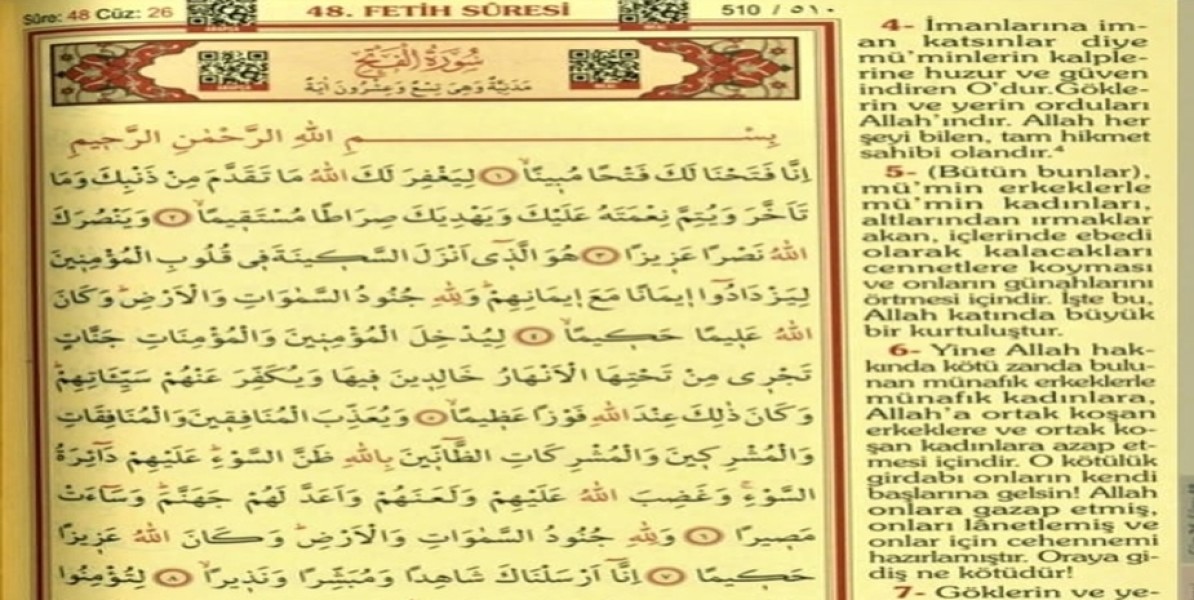 Sûre: 48 Cüz: 26
48. FETİH SÛRESİ
510 / ٥١٠
سُورَةُ الْفَتْحِ
مَدَنِيَّةٌ وَهِيَ تِسْعٌ وَعِشْرُونَ اٰيَةً
بِسْمِ اللّٰهِ الرَّحْمٰنِ الرَّحِيمِ
اِنَّا فَتَحْنَا لَكَ فَتْحًا مُبِينًاۙ ﴿١﴾ لِيَغْفِرَ لَكَ اللّٰهُ مَا تَقَدَّمَ مِنْ ذَنْبِكَ وَمَا
تَاَخَّرَ وَيُتِمَّ نِعْمَتَهُ عَلَيْكَ وَيَهْدِيَكَ صِرَاطًا مُسْتَقِيمًاۙ ﴿٢﴾ وَيَنْصُرَكَ
اللّٰهُ نَصْرًا عَزِيزًا ﴿٣﴾ هُوَ الَّذِٓي اَنْزَلَ السَّكِينَةَ فِي قُلُوبِ الْمُؤْمِنِينَ
لِيَزْدَادُٓوا اِيمَانًا مَعَ اِيمَانِهِمْۜ وَلِلّٰهِ جُنُودُ السَّمٰوَاتِ وَالْاَرْضِۜ وَكَانَ
اللّٰهُ عَلِيمًا حَكِيمًاۙ ﴿٤﴾ لِيُدْخِلَ الْمُؤْمِنِينَ وَالْمُؤْمِنَاتِ جَنَّاتٍ
تَجْرِي مِنْ تَحْتِهَا الْاَنْهَارُ خَالِدِينَ فِيهَا وَيُكَفِّرَ عَنْهُمْ سَيِّـَٔاتِهِمْۜ
وَكَانَ ذٰلِكَ عِنْدَ اللّٰهِ فَوْزًا عَظِيمًاۙ ﴿٥﴾ وَيُعَذِّبَ الْمُنَافِقِينَ وَالْمُنَافِقَاتِ
وَالْمُشْرِكِينَ وَالْمُشْرِكَاتِ الظَّٓانِّينَ بِاللّٰهِ ظَنَّ السَّوْءِۜ عَلَيْهِمْ دَٓائِرَةُ
السَّوْءِۚ وَغَضِبَ اللّٰهُ عَلَيْهِمْ وَلَعَنَهُمْ وَاَعَدَّ لَهُمْ جَهَنَّمَۜ وَسَٓاءَتْ
مَصِيرًا ﴿٦﴾ وَلِلّٰهِ جُنُودُ السَّمٰوَاتِ وَالْاَرْضِۜ وَكَانَ اللّٰهُ عَزِيزًا
حَكِيمًا ﴿٧﴾ اِنَّٓا اَرْسَلْنَاكَ شَاهِدًا وَمُبَشِّرًا وَنَذِيرًاۙ ﴿٨﴾ لِتُؤْمِنُوا
4- İmanlarına im-
an katsınlar diye
mü'minlerin kalple-
rine huzur ve güven
indiren O'dur.Gökle-
rin ve yerin orduları
Allah'ındır. Allah her
şeyi bilen, tam hikmet
sahibi olandır.⁴
5- (Bütün bunlar),
mü'min erkeklerle
mü'min kadınları,
altlarından ırmaklar
akan, içlerinde ebedi
olarak kalacakları
cennetlere koyması
ve onların günahlarını
örtmesi içindir. İşte bu,
Allah katında büyük
bir kurtuluştur.
6- Yine Allah hak-
kında kötü zanda bulu-
nan münafık erkeklerle
münafık kadınlara,
Allah'a ortak koşan
erkeklere ve ortak ko-
şan kadınlara azap et-
mesi içindir. O kötülük
girdabı onların kendi
başlarına gelsin! Allah
onlara gazap etmiş,
onları lânetlemiş ve
onlar için cehennemi
hazırlamıştır. Oraya gi-
diş ne kötüdür!
7- Göklerin ve ye-